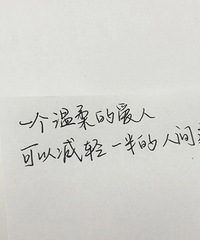 一个温柔的爱人
可以减轻一半的人间